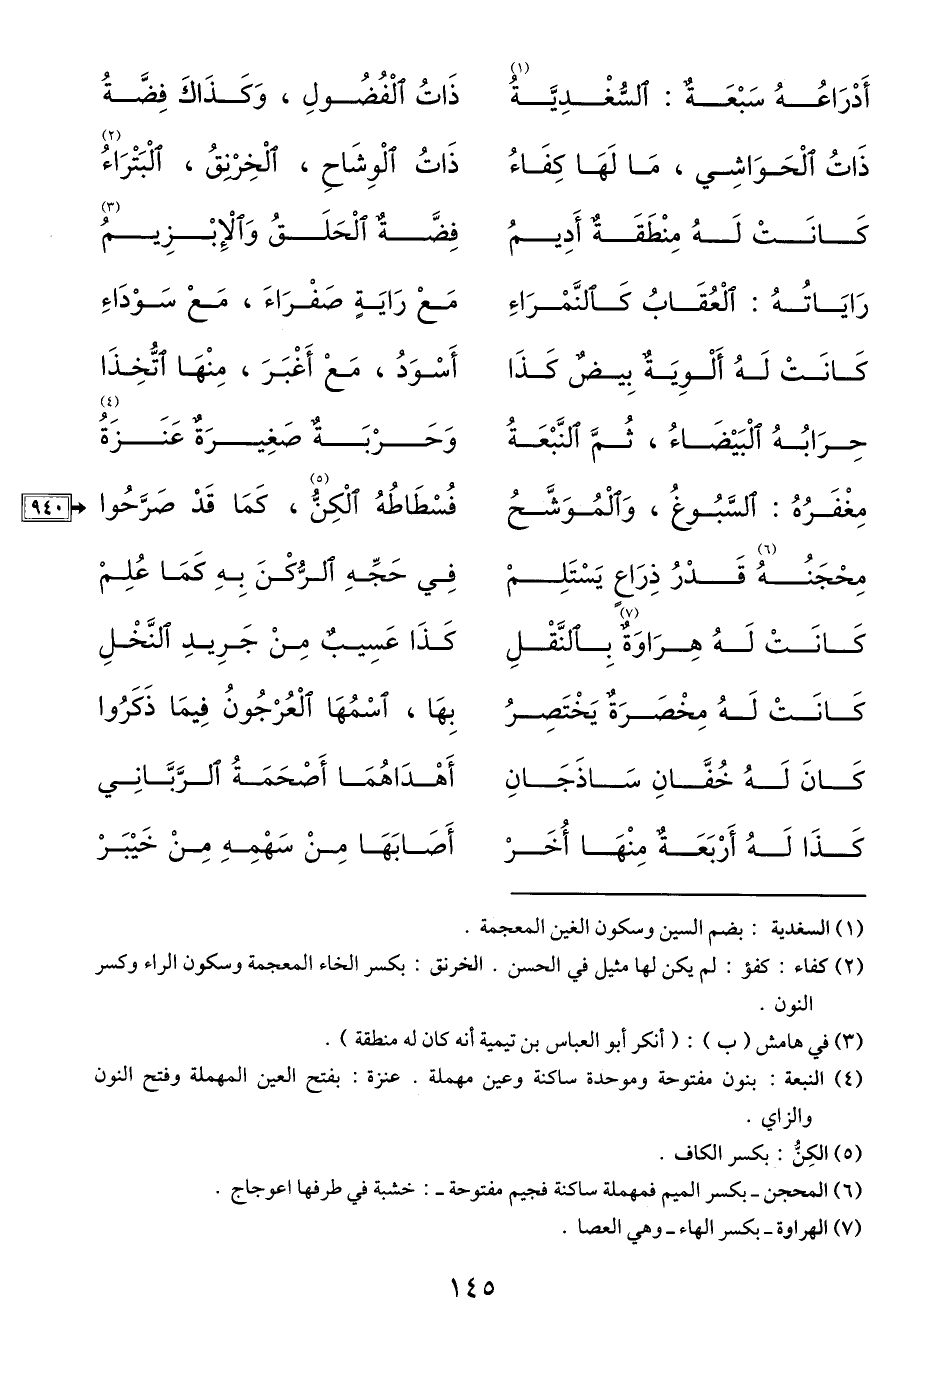 أَدْرَاعُهُ سَبْعَةٌ : ٱلسُّغْدِيَّةُ (١) ذَاتُ ٱلْفُضُولِ ، وَكَذَاكَ فِضَّةُ
ذَاتُ ٱلْحَوَاشِي ، مَا لَهَا كِفَاءُ ذَاتُ ٱلْوِشَاحِ ، ٱلْخِرْنِقُ ، ٱلْبَتْرَاءُ (٢)
كَانَتْ لَهُ مِنْطَقَةٌ أَدِيمُ فِضَّةٌ ٱلْحَلَقُ وَٱلْإِبْزِيمُ (٣)
رَايَاتُهُ : ٱلْعُقَابُ كَٱلنَّمْرَاءِ مَعْ رَايَةٍ صَفْرَاءَ ، مَعْ سَوْدَاءِ
كَانَتْ لَهُ أَلْوِيَةٌ بِيضٌ كَذَا أَسْوَدُ ، مَعْ أَغْبَرَ ، مِنْهَا ٱتُّخِذَا
حِرَابُهُ ٱلْبَيْضَاءُ ، ثُمَّ ٱلنَّبْعَةُ وَحَرْبَةٌ صَغِيرَةٌ عَنَزَةُ (٤)
مِغْفَرُهُ : ٱلسَّبُوغُ ، وَٱلْمُوَشَّحُ فُسْطَاطُهُ ٱلْكِنُّ (٥) ، كَمَا قَدْ صَرَّحُوا ٩٤٠
مِحْجَنُهُ (٦) قَدْرُ ذِرَاعٍ يَسْتَلِمْ فِي حَجِّهِ ٱلرُّكْنَ بِهِ كَمَا عُلِمْ
كَانَتْ لَهُ هِرَاوَةٌ (٧) بِٱلنَّقْلِ كَذَا عَسِيبٌ مِنْ جَرِيدِ ٱلنَّخْلِ
كَانَتْ لَهُ مِخْصَرَةٌ يَخْتَصِرُ بِهَا ، ٱسْمُهَا ٱلْعُرْجُونُ فِيمَا ذَكَرُوا
كَانَ لَهُ خُفَّانِ سَاذَجَانِ أَهْدَاهُمَا أَصْحَمَةُ ٱلرَّبَّانِي
كَذَا لَهُ أَرْبَعَةٌ مِنْهَا أُخَرْ أَصَابَهَا مِنْ سَهْمِهِ مِنْ خَيْبَرْ
(١) السغدية : بضم السين وسكون الغين المعجمة .
(٢) كفاء : كفؤ : لم يكن لها مثيل في الحسن . الخرنق : بكسر الخاء المعجمة وسكون الراء وكسر
النون .
(٣) في هامش ( ب ) : ( أنكر أبو العباس بن تيمية أنه كان له منطقة ) .
(٤) النبعة : بنون مفتوحة وموحدة ساكنة وعين مهملة . عنزة : بفتح العين المهملة وفتح النون
والزاي .
(٥) الكِنُّ : بكسر الكاف .
(٦) المحجن ـ بكسر الميم فمهملة ساكنة فجيم مفتوحة ـ : خشبة في طرفها اعوجاج .
(٧) الهراوة ـ بكسر الهاء ـ وهي العصا .
١٤٥